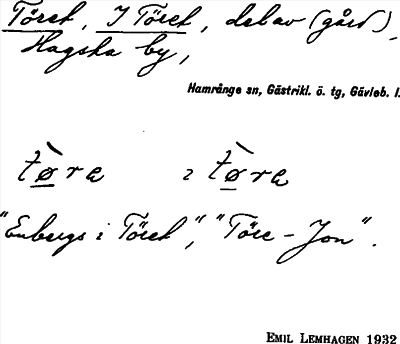 Töret, I Töret, del av (gård),
Hagsta by,
Hamrånge sn, Gästrikl. ö. tg, Gävleb. l.
tø̀ra i tø̀ra
"Enbergs i Töret", "Töre-Jon".
EMIL LEMHAGEN 1932